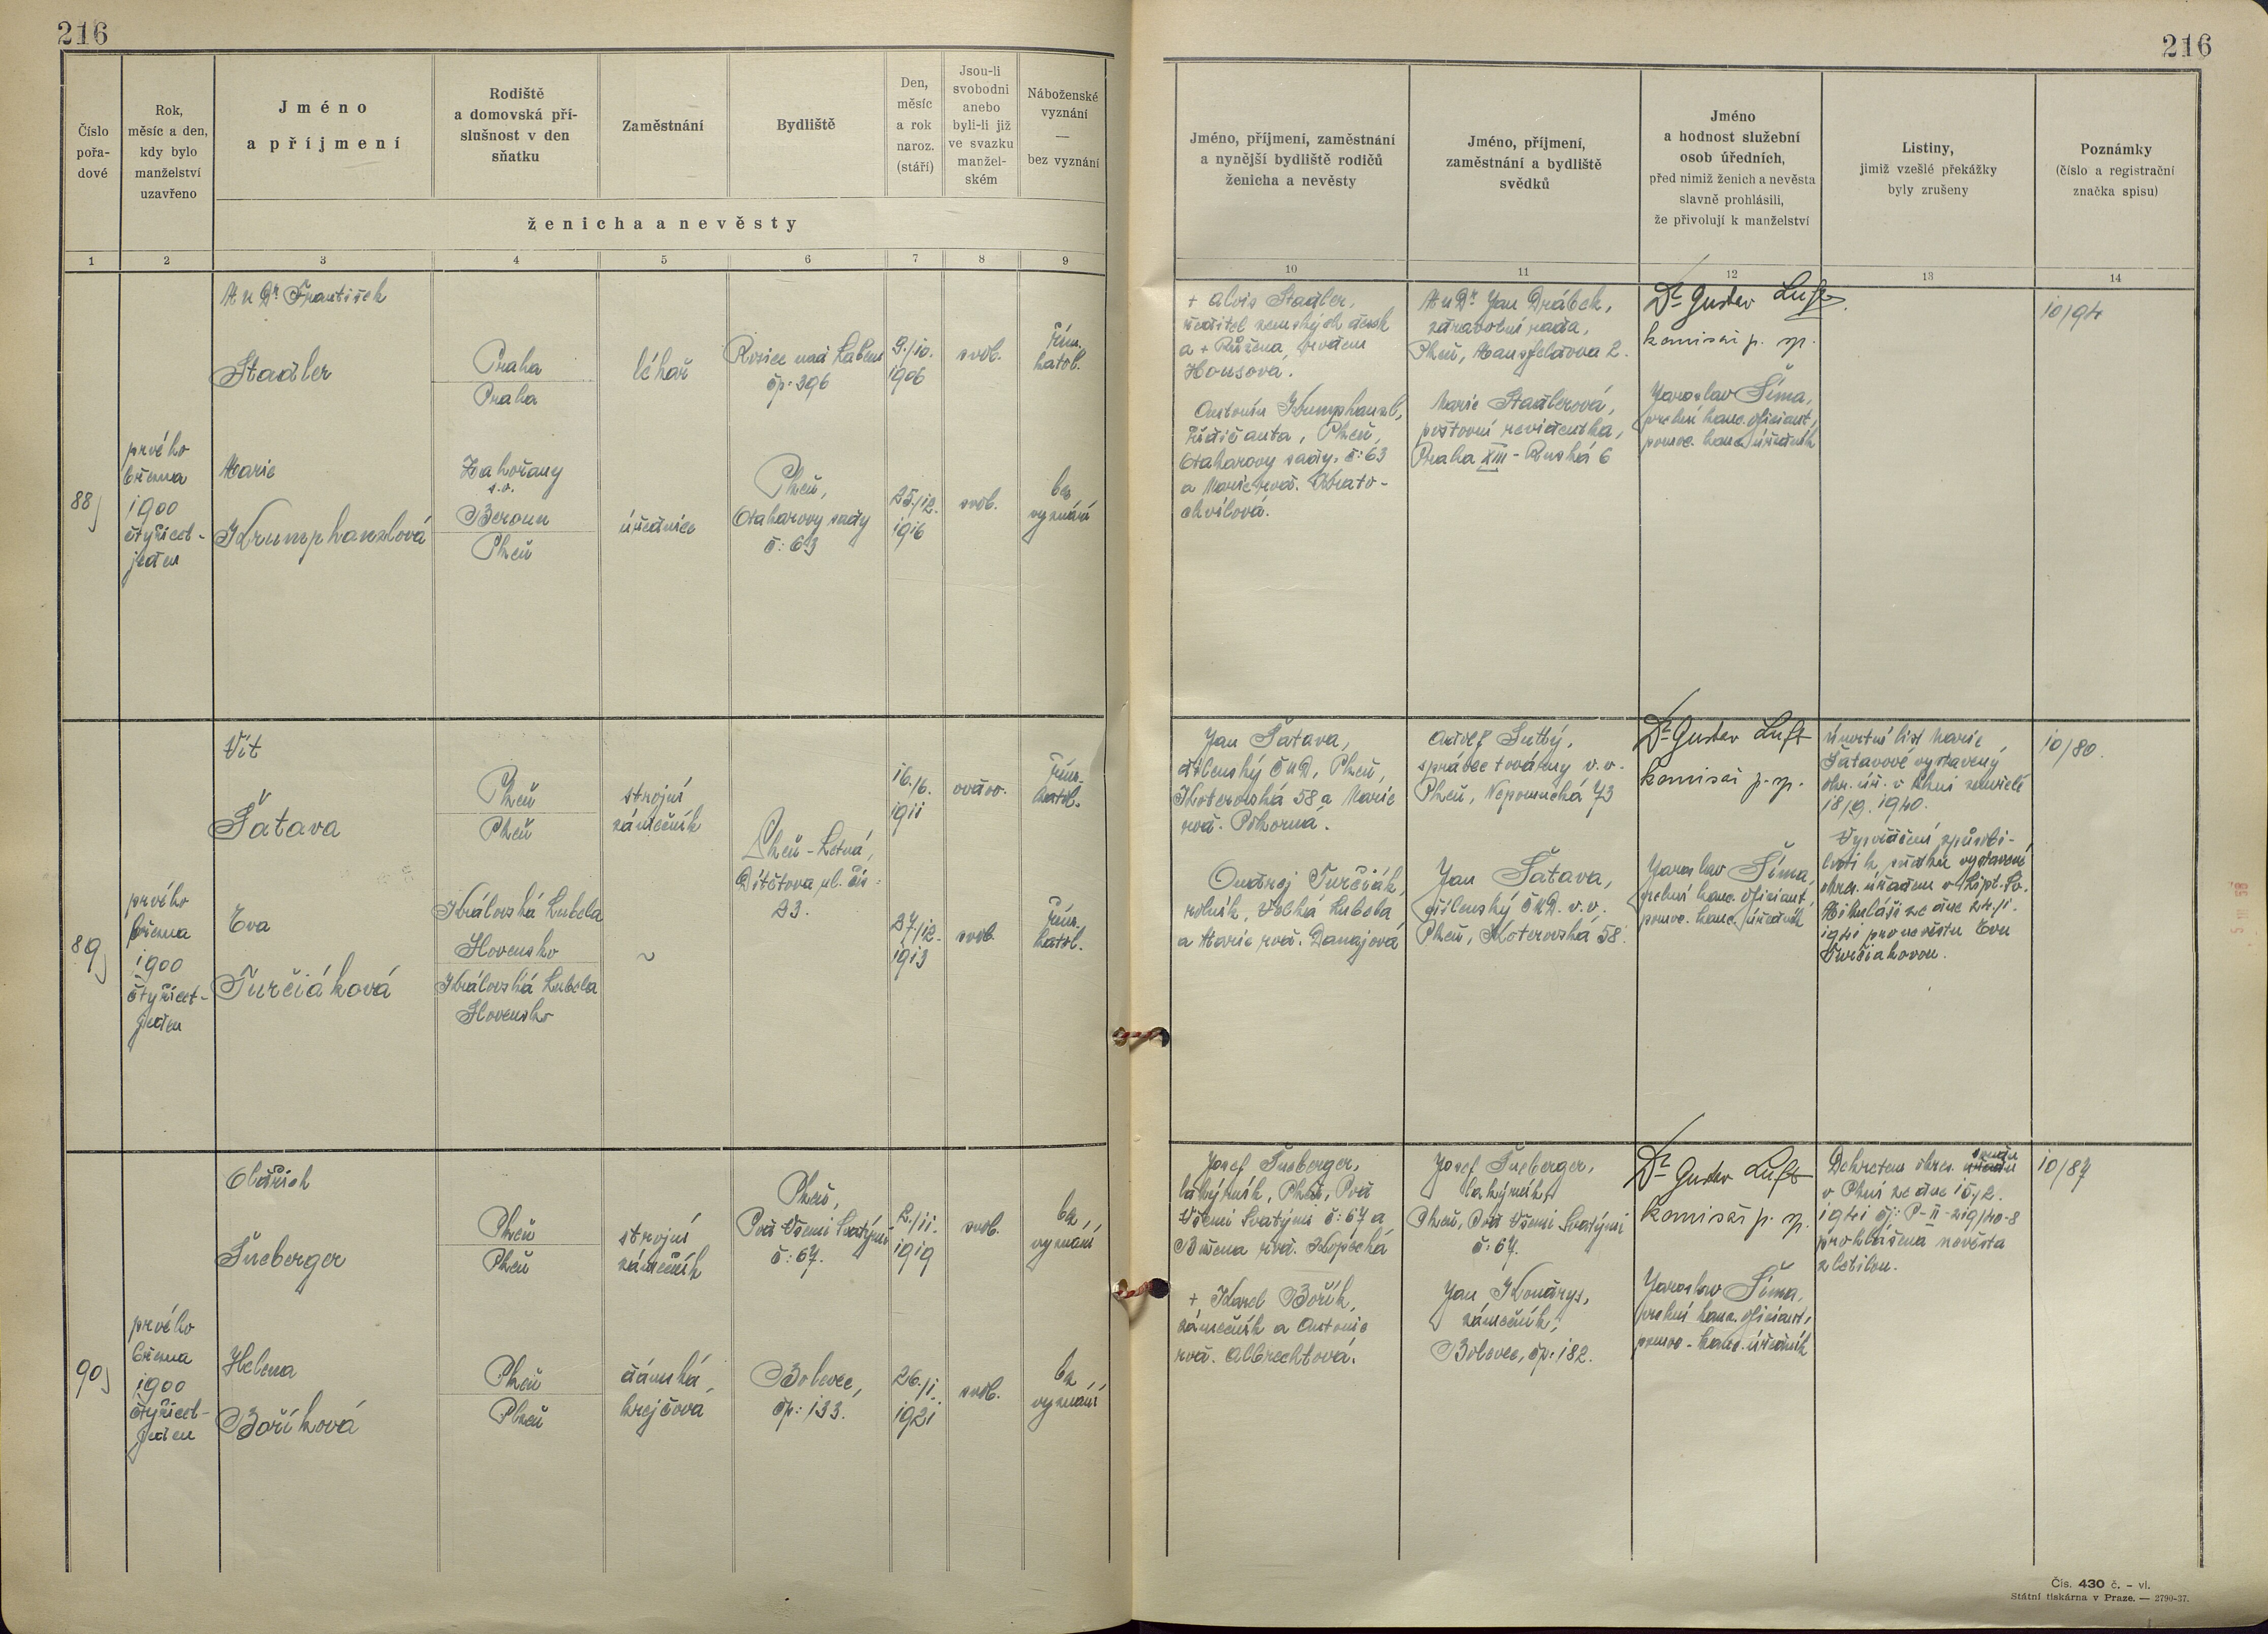 216
216
Číslo
pořa-
dové
Rok,
měsíc a den,
kdy bylo
manželství
uzavřeno
Jméno
a příjmení
Rodiště
a domovská pří-
slušnost v den
sňatku
Zaměstnání
Bydliště
Den,
měsíc
a rok
naroz.
(stáří)
Jsou-li
svobodni
anebo
byli-li již
ve svazku
manžel-
ském
Náboženské
vyznání
—
bez vyznání
ženicha a nevěsty
Jméno, příjmení, zaměstnání
a nynější bydliště rodičů
ženicha a nevěsty
Jméno, příjmení,
zaměstnání a bydliště
svědků
Jméno
a hodnost služební
osob úředních,
před nimiž ženich a nevěsta
slavně prohlásili,
že přivolují k manželství
Listiny,
jimiž vzešlé překážky
byly zrušeny
Poznámky
(číslo a registrační
značka spisu)
1 2 3 4 5 6 7 8 9
10 11 12 13 14
88)
prvého
března
1900
čtyřicet-
jeden
MUDr František
Stadler
Praha
Praha
lékař
Rosice nad Labem
čp: 296
9./10.
1906
svob.
řím.
katol.
Marie
Krumphanzlová
Zahořany
s.o.
Beroun
Plzeň
úřednice
Plzeň,
Otakarovy sady
č: 63
25./12.
1916
svob.
bez
vyznání
+ Alois Stadler,
ředitel zemských desk
a + Růžena, rozen
Housova.
Antonín Krumphanzl,
řídič auta, Plzeň,
Otakarovy sady. č: 63
a Marie roz. Krato-
chvílová.
MUDr Jan Drábek,
zdravotní rada,
Plzeň, Mansfeldova 2.
Marie Stadlerová,
poštovní revidentka,
Praha XIII - Ruská 6
Dr Gustav Luft
komisař p. sp.
Jaroslav Šíma,
vrchní kanc. oficiant,
pomoc. kanc. úředník
10/94
89)
prvého
března
1900
čtyřicet-
jeden
Vít
Šatava
Plzeň
Plzeň
strojní
zámečník
Plzeň - Letná,
Dítětova ul. čís:
23.
16./6.
1911
ovdov.
řím.
katol.
Eva
Turčiáková
Kráľovská Lubela
Slovensko
Kráľovská Lubela
Slovensko
~
27/12.
1913
svob.
řím.
katol.
Jan Šatava,
dílenský ČMD, Plzeň,
Koterovská 58 a Marie
roz. Pokorná.
Ondrej Turčiák,
rolník, Veľká Lubela
a Marie roz. Danajová
spráwce továrny v. v.
Plzeň, Nepomucká 73
Jan Šatava,
dílenský ČMD. v. v.
Plzeň, Koterovská 58.
Dr Gustav Luft
komisař p. sp.
Jaroslav Šíma,
vrchní kanc. oficiant,
pomoc. kanc. úředník
úmrtní list Marie
Šatavové vystavený
okr. úř. v Plzni zemřelé
18/9. 1940.
Vysvědčení způsobi-
losti k sňatku vystavené
okres. úřadem v Lipt. Sv.
Mikuláši ze dne 24./1.
1941 pro nevěstu Evu
Turčiakovou.
10/80.
90)
prvého
března
1900
čtyřicet-
jeden
Oldřich
Šneberger
Plzeň
Plzeň
strojní
zámečník
Plzeň,
Pod Všemi Svatými
č: 67.
2./11.
1919
svob.
bez
vyznání
Helena
Boříková
Plzeň
Plzeň
dámská
krejčová
Bolevec,
čp: 133.
26./1.
1921
svob.
bez
vyznání
Josef Šneberger,
lakýrník, Plzeň, Pod
Všemi Svatými č: 67 a
Božena roz. Kopecká
+ Karel Bořík,
zámečník a Antonie
roz. Albrechtová.
Josef Šneberger,
lakýrník,
Plzeň, Pod Všemi Svatými
č: 67.
Jan Kondrys,
zámečník,
Bolevec, čp: 182.
Dr Gustav Luft
komisař p. sp.
Jaroslav Šíma,
vrchní kanc. oficiant,
pomoc. kanc. úředník
Dekretem okres. soudu
v Plzni ze dne 15./2.
1941 čj: P-II-219/40-8
prohlášena nevěsta
zletilou.
10/87
Čís. 430 č. - vl.
Státní tiskárna v Praze. — 2790-37.